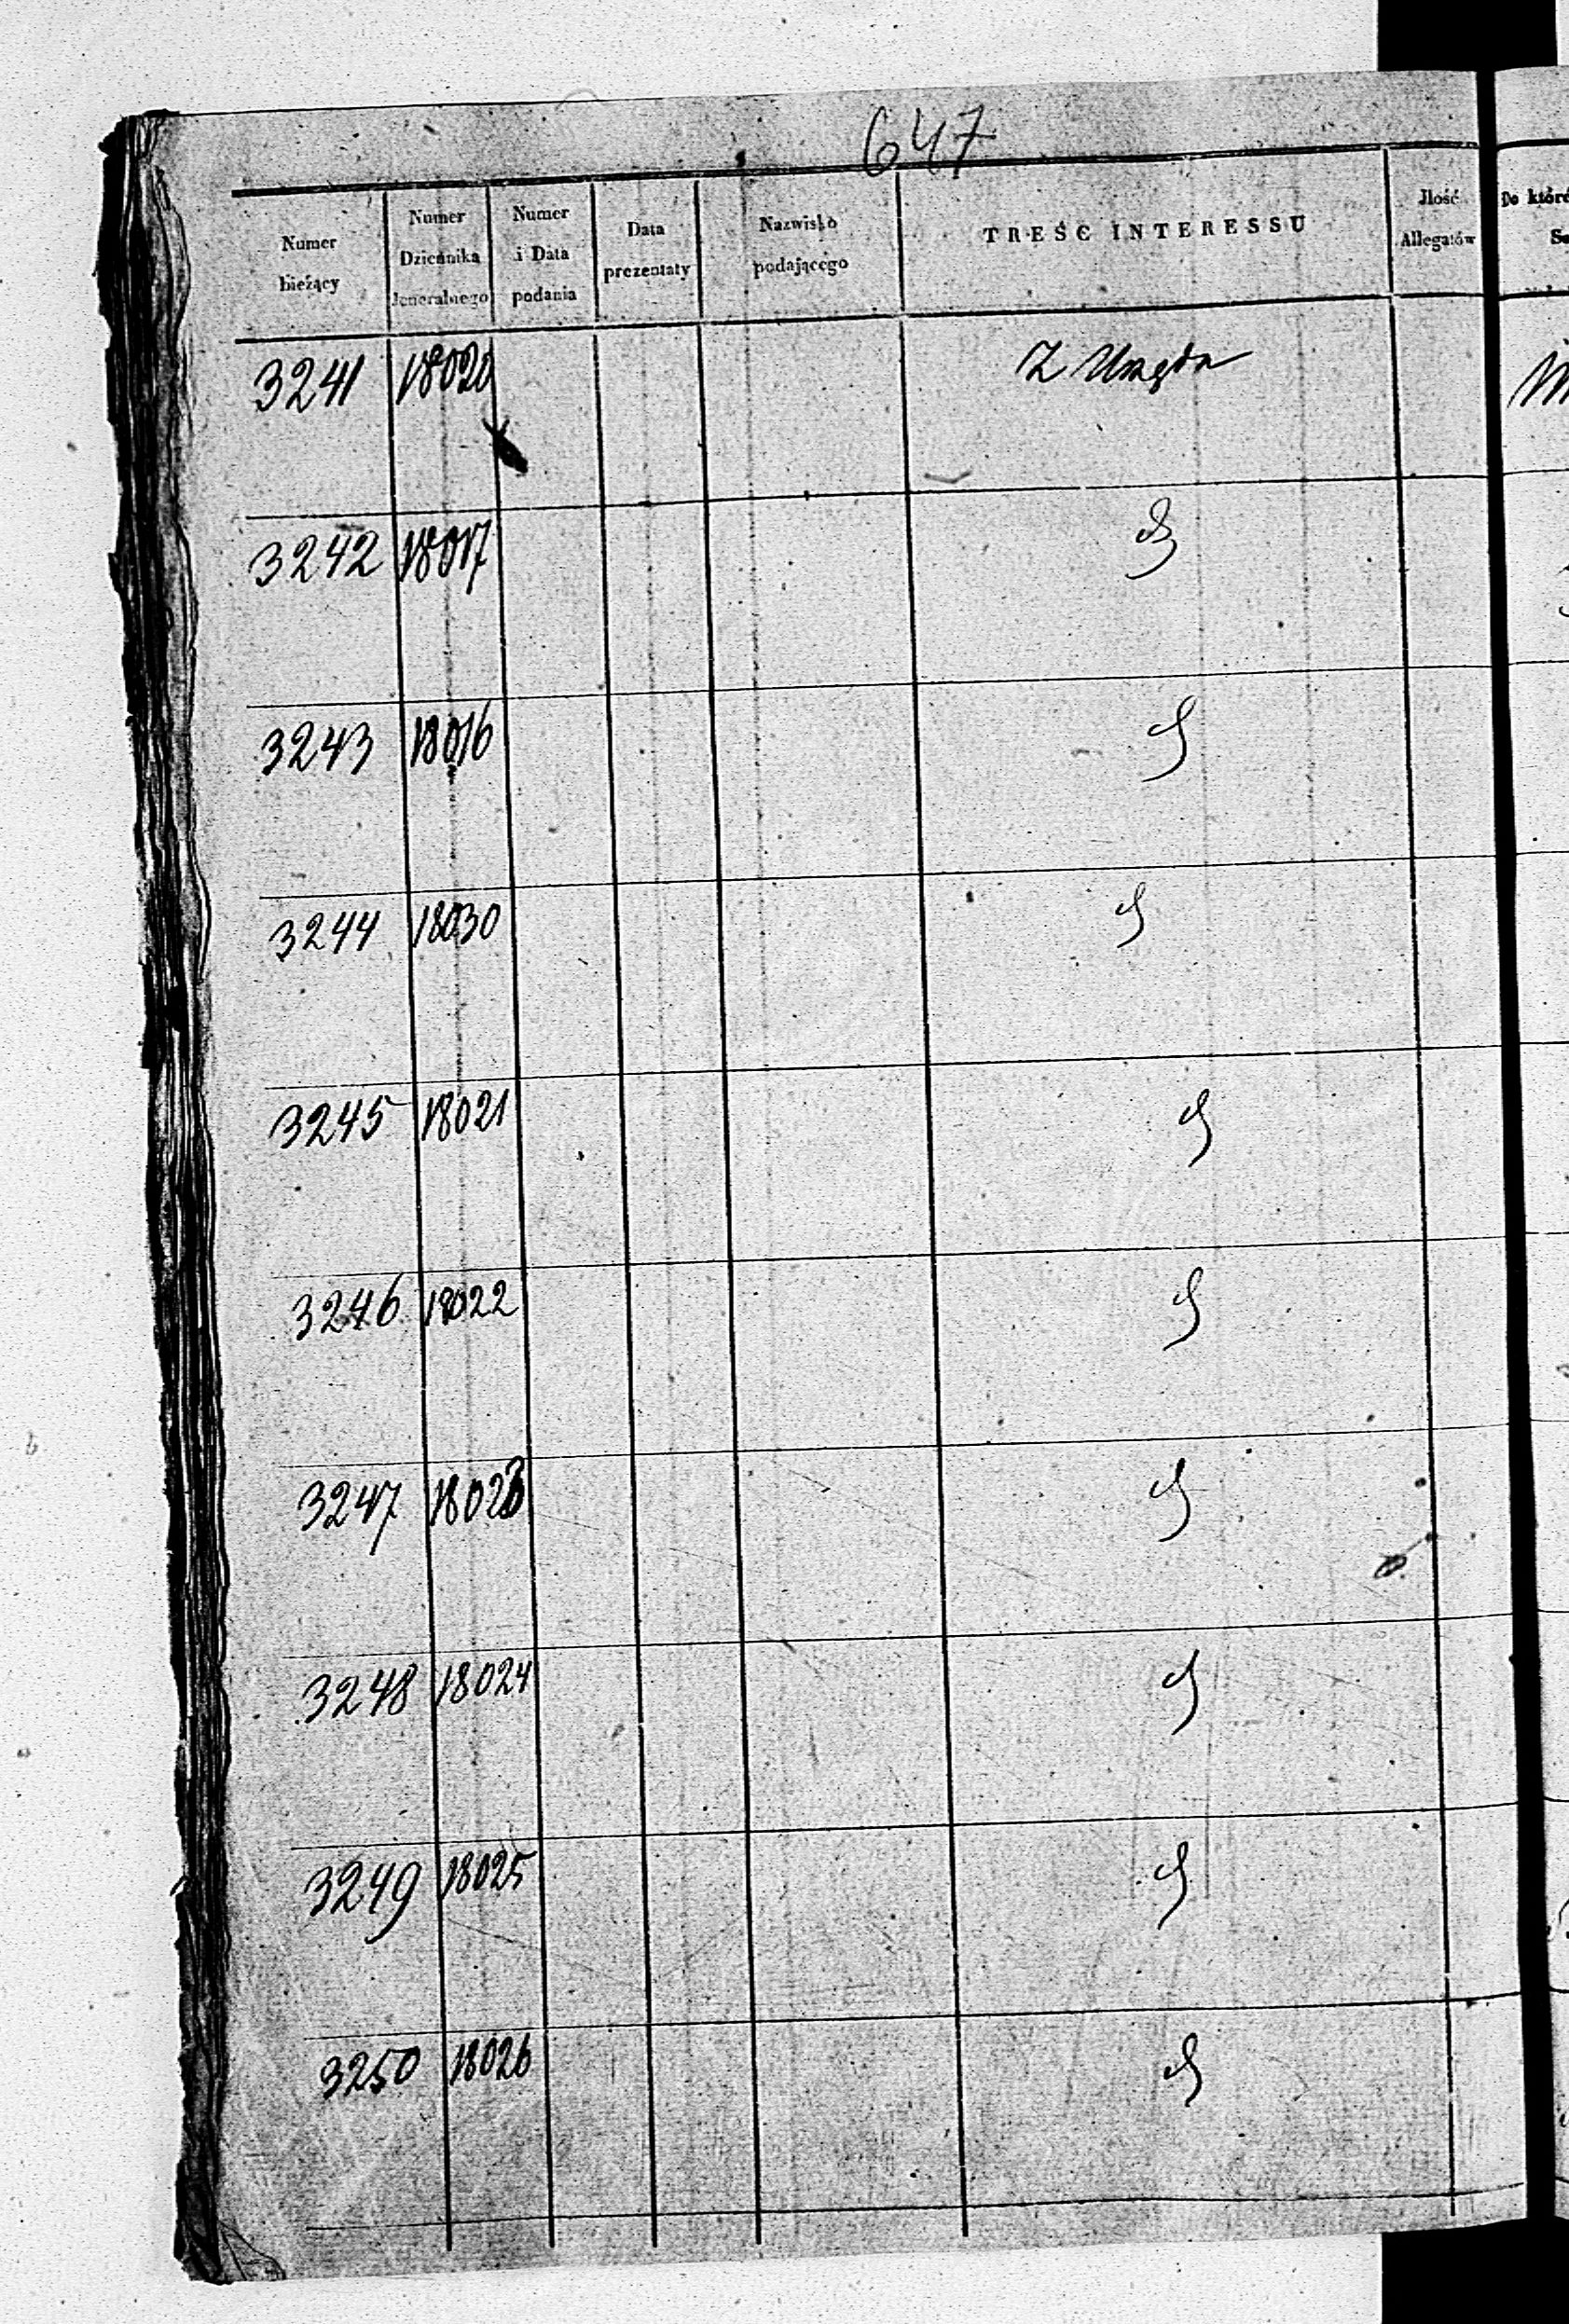 647
Numer bieżący | Numer Dziennika Jeneralnego | Numer i Data podania | Data prezentaty | Nazwisko podającego | TREŚĆ INTERESSU | Jlość Allegatów
3241 18020 Z Urzędu
3242 18017
3243 18016
3244 18030
3245 18021
3246 18022
3247 18023
3248 18024
3249 18025
3250 18026